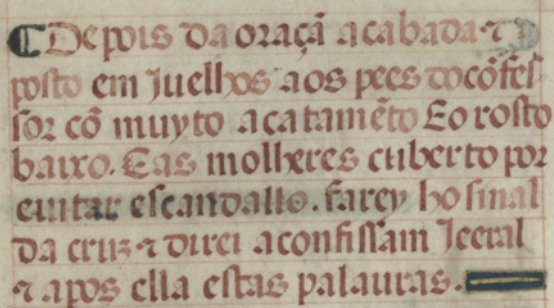 ¶ Depois da oraçã acabada ⁊
posto em Juelhos aos pees do cõfes
sor cõ muyto acatamẽto E o rosto
baixo. E as molheres cuberto por
euitar escandallo. farey ho sinal
da cruz ⁊ direi a confissam Jeeral
⁊ apos ella estas palauras.